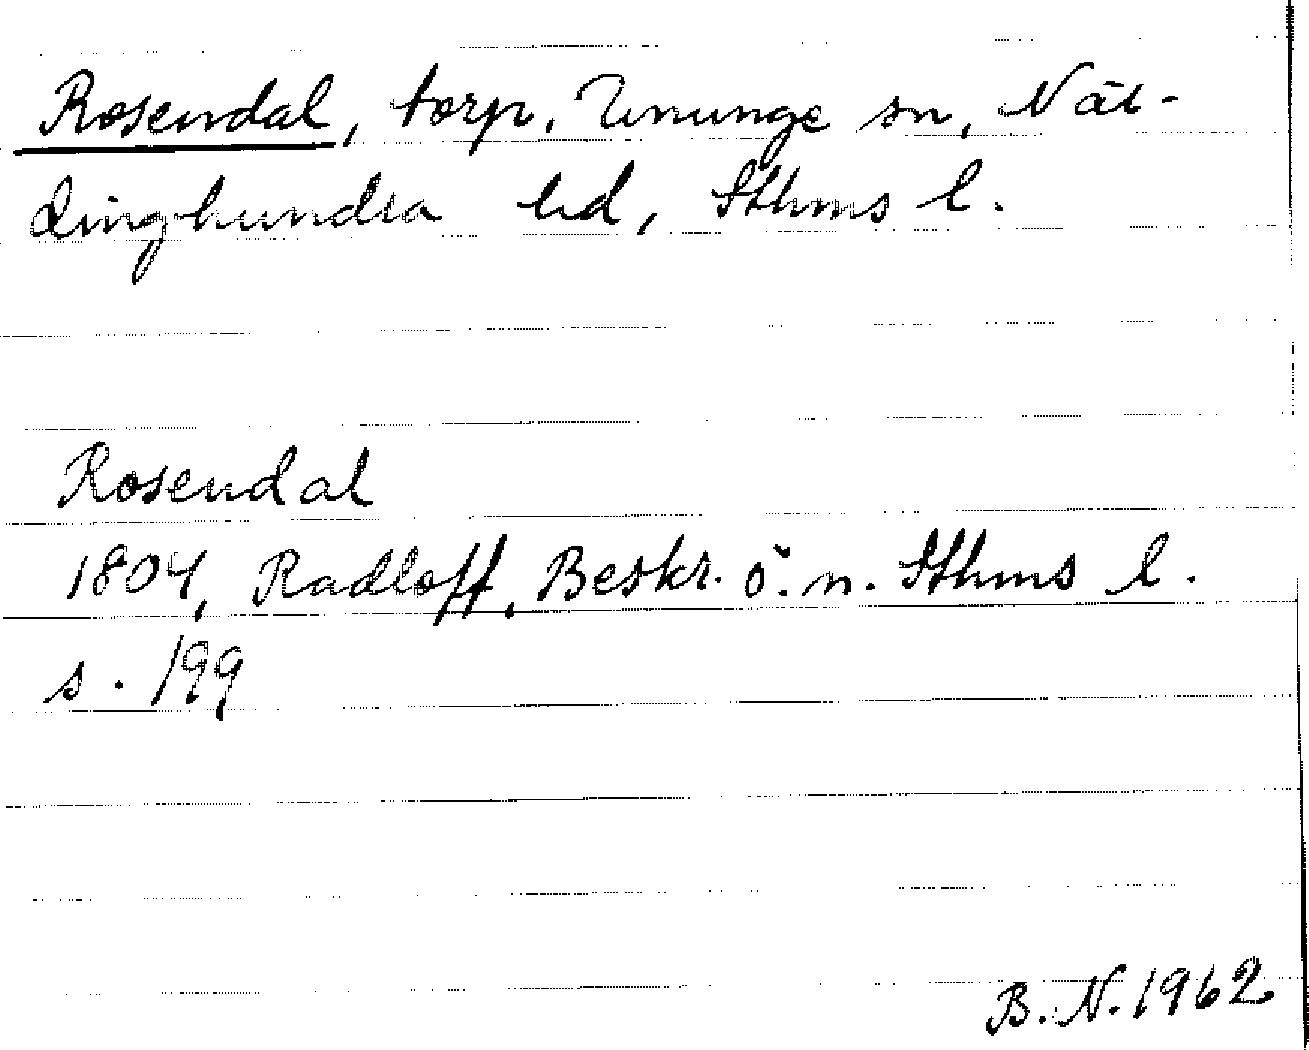 Rosendal, torp, Ununge sn, När-
dinghundra hd, Sthms l.
Rosendal
1804, Radloff, Beskr. ö. n. Sthms l.
s. 199
B. N. 1962